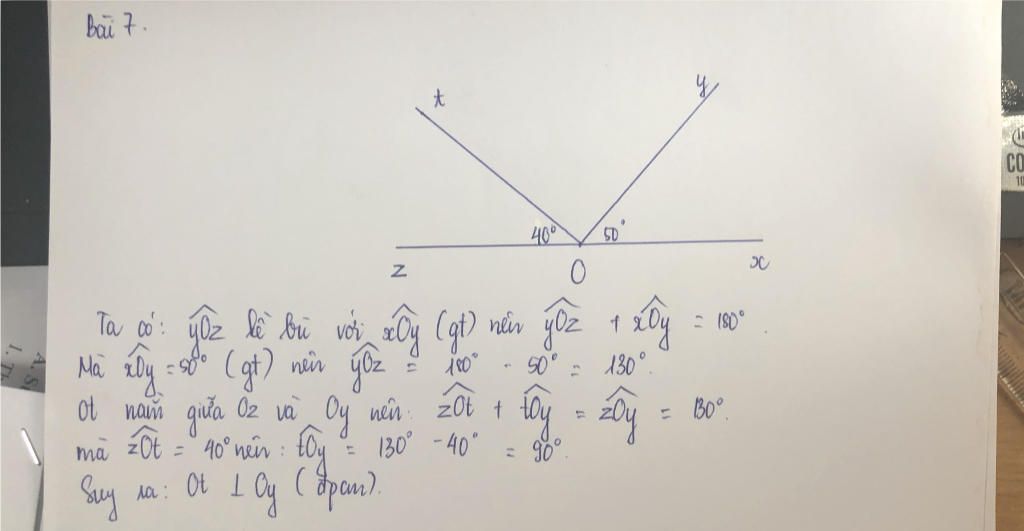 Bài 7.
t
y
40°
50°
z
O
x
Ta có: yOz kề bù với xOy (gt) nên yOz + xOy = 180°.
Mà xOy = 50° (gt) nên yOz = 180° - 50° = 130°.
Ot nằm giữa Oz và Oy nên: zOt + tOy = zOy = 130°.
mà zOt = 40° nên: tOy = 130° - 40° = 90°.
Suy ra: Ot ⊥ Oy (đpcm).
CO
10